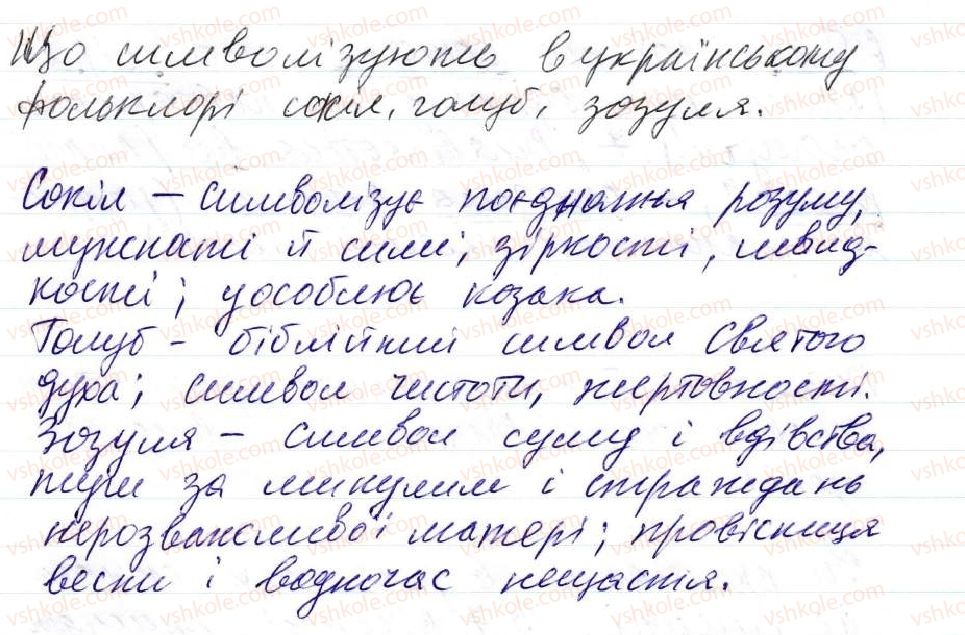 Що символізують в українському
фольклорі сокіл, голуб, зозуля.
Сокіл – символізує поєднання розуму,
мужності й сили, зіркості, швид-
кості; уособлює козака.
Голуб – біблійний символ Святого
духа; символ чистоти, жертовності.
Зозуля – символ суму і вдівства,
туги за минулим і страждань
нерозважливої матері; провісниця
весни і водночас нещастя.